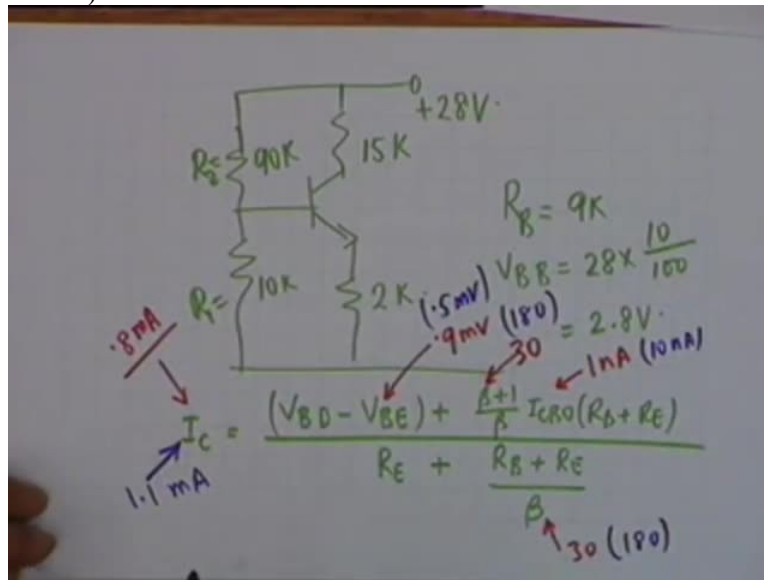 +28V.
R2= 90K
15K
RB = 9K
VBB = 28 x 10/100
= 2.8V.
R1= 10K
2K
(.5mV)
.9mV (180)
30
1nA (10nA)
.8mA
IC = (VBD - VBE) + β+1/β ICBO (RB + RE)
RE + RB + RE/β
1.1 mA
30 (180)